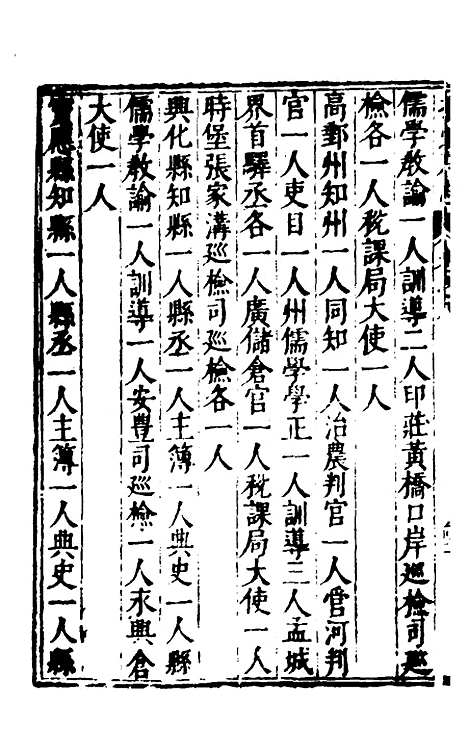 儒學教諭一人訓導二人印莊黃橋口岸巡檢司巡
檢各一人稅課局大使一人
高郵州知州一人同知一人治農判官一人管河判
官一人吏目一人州儒學學正一人訓導三人孟城
界首驛丞各一人廣儲倉官一人稅課局大使一人
時堡張家溝巡檢司巡檢各一人
興化縣知縣一人縣丞一人主簿一人典史一人縣
儒學教諭一人訓導一人安豐司巡檢一人永興倉
大使一人
寶應縣知縣一人縣丞一人主簿一人典史一人縣